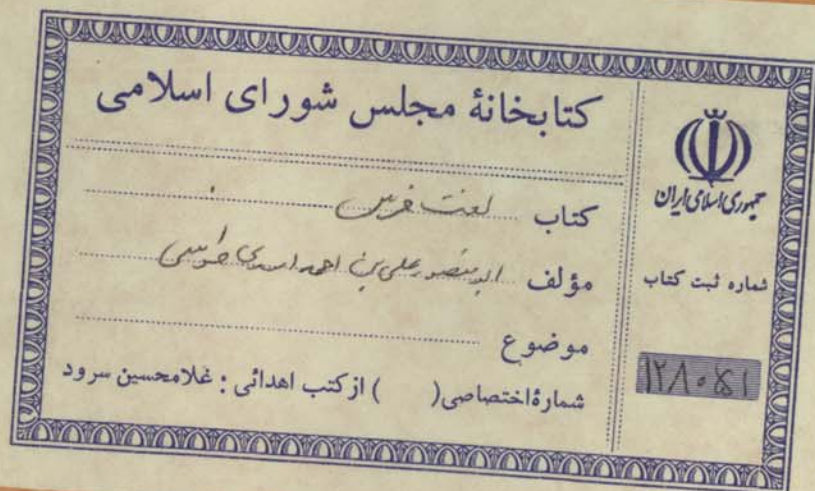 کتابخانهٔ مجلس شورای اسلامی
کتاب لغت فرس
مؤلف ابو منصور علی بن احمد اسدی طوسی
موضوع
شمارهٔ اختصاصی ( ) از کتب اهدائی : غلامحسین سرود
جمهوری اسلامی ایران
شماره ثبت کتاب
۱۲۸۰۵۱